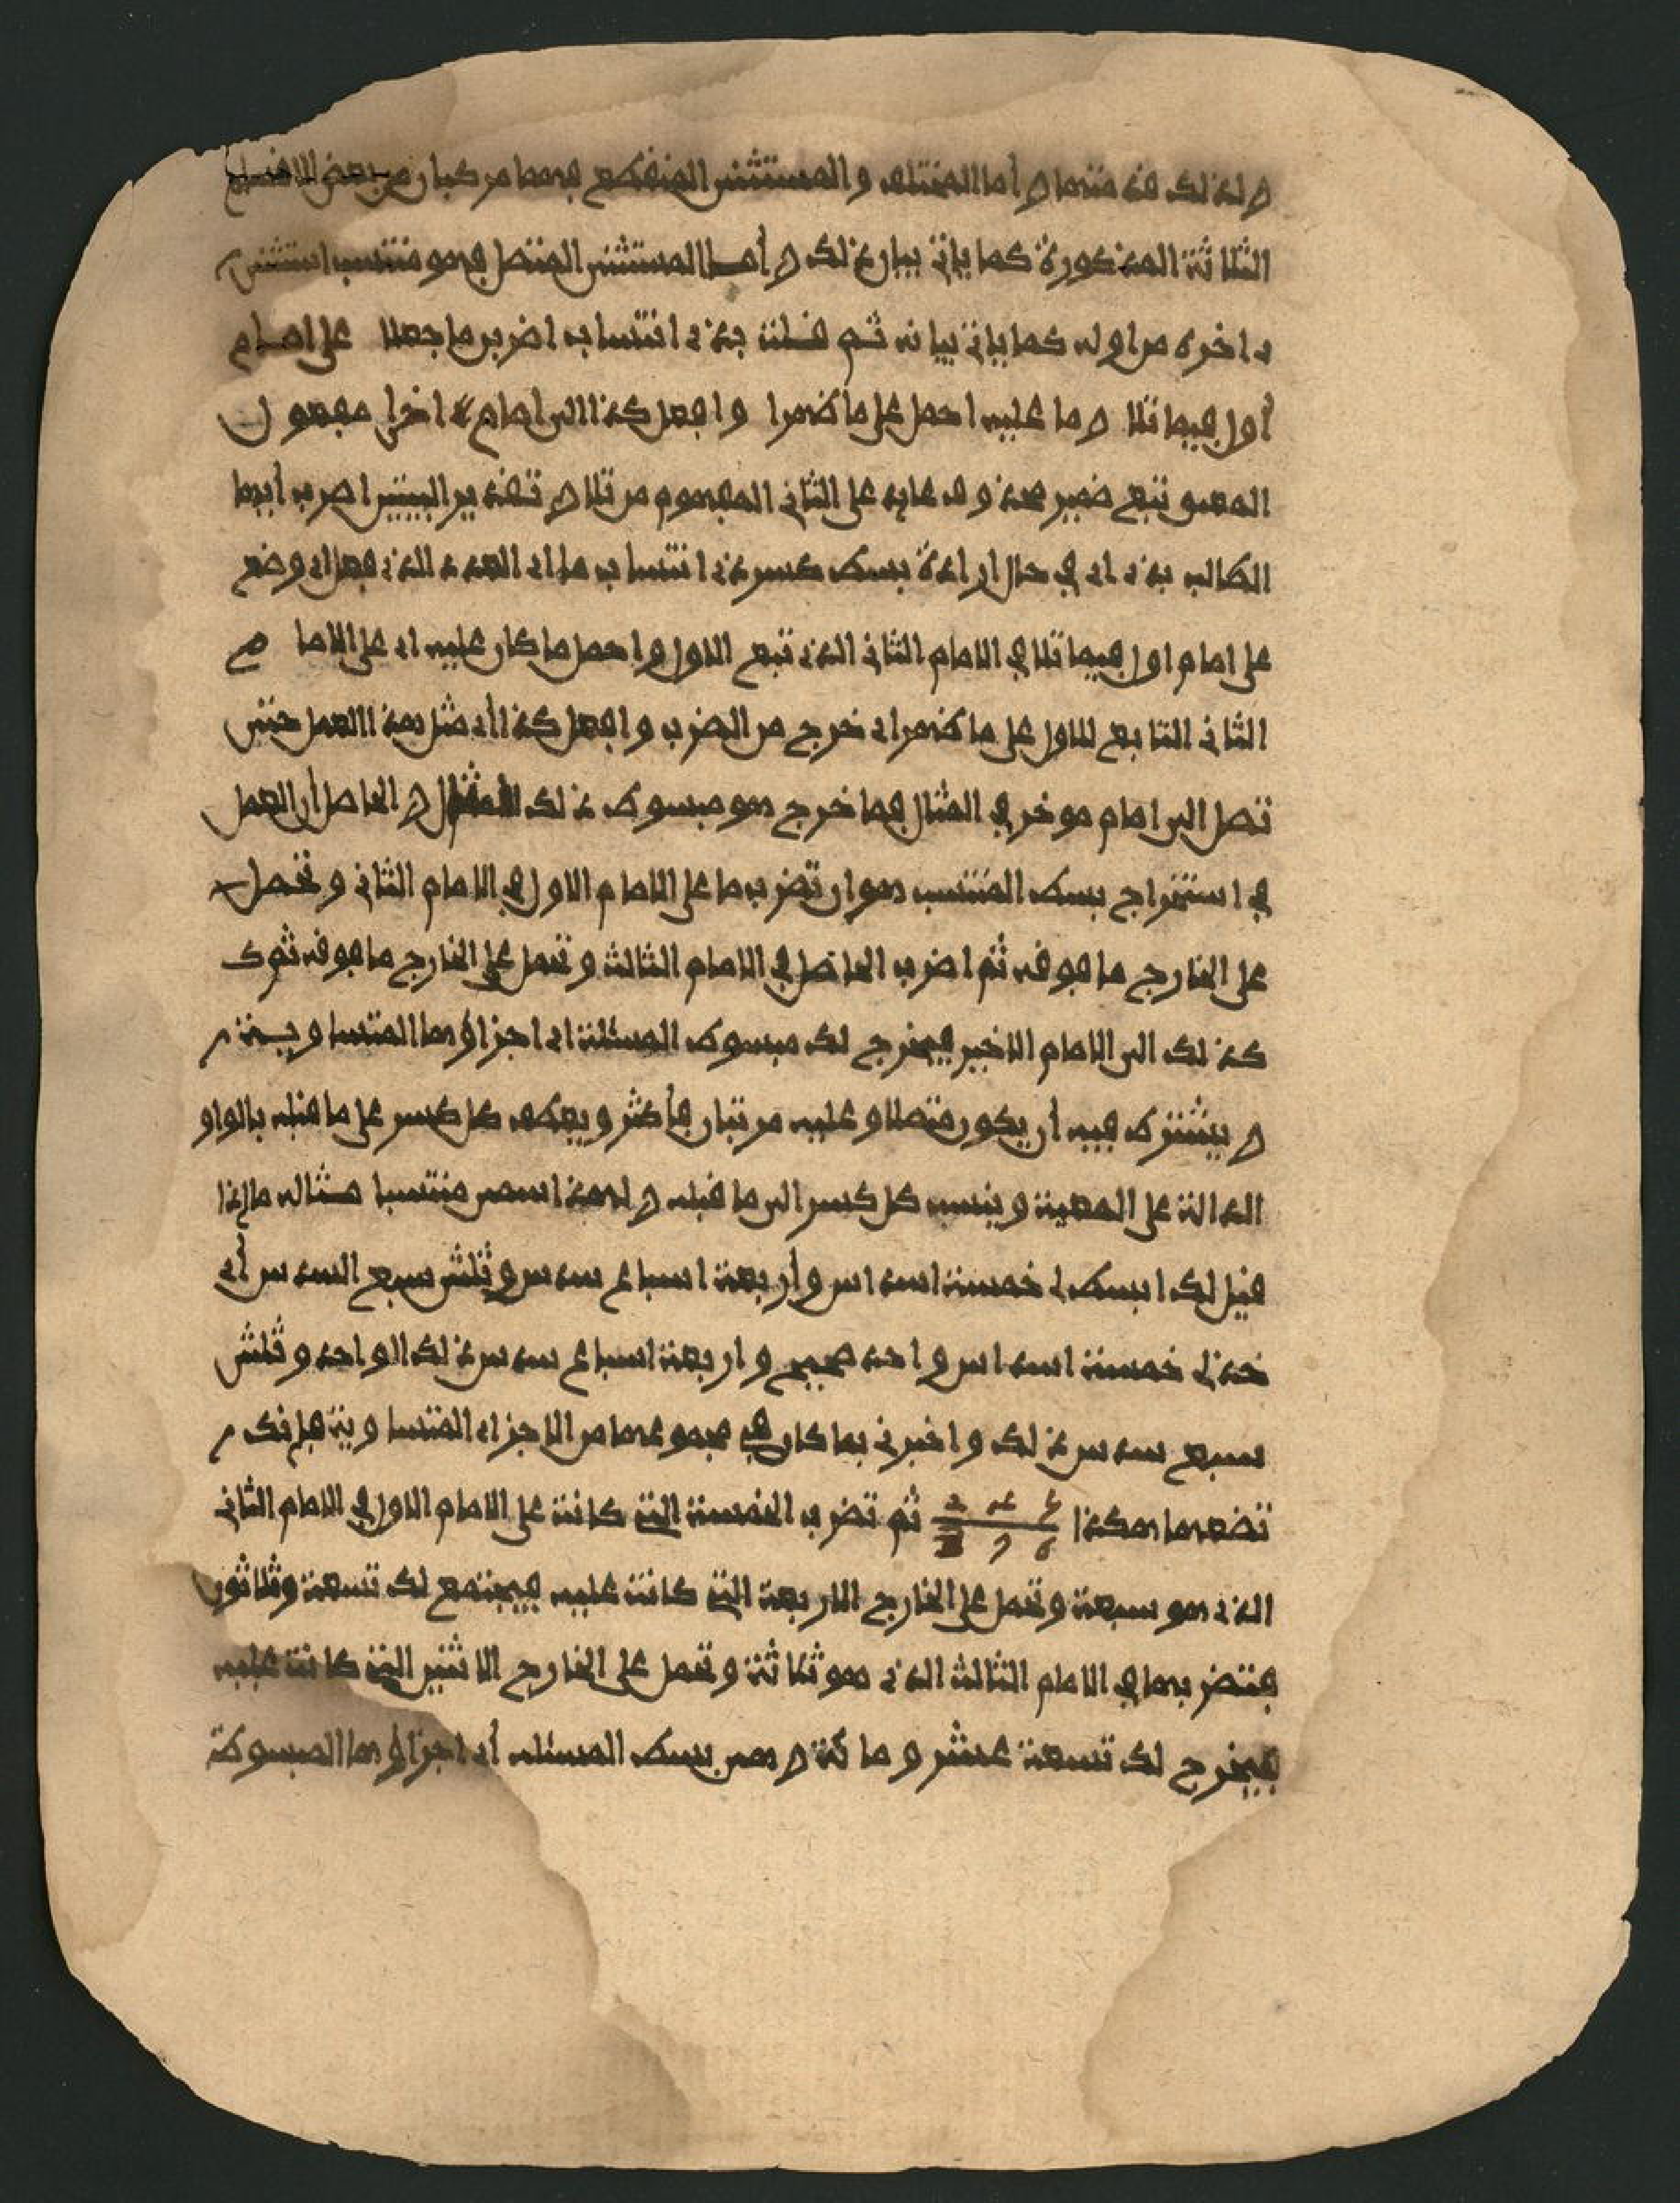 ولذلك قدمتهما وأما المختلف والمستثنى المنقطع فهما مركبان من بعض الاقسام
الثلاثة المذكورة كما ياتي بيان ذلك وأما المستثنى المتصل فهو منتسب استثنى
اخره من اوله كما ياتي بيانه ثم قلت بذي انتساب اضربن ما جعلا على امام
أول فيما تلا وما عليه احمل على ما ظهرا وافعل كذا الى امام اخرا مفعول
على الثاني المفهوم من تلا وتقدير البيتين اضرب أيها
الطالب اي في حال ارادة بسط كسر ذي انتساب ما اي العدد الذي جعل اي وضع
على امام اول فيما تلا في الامام الثاني الذي تبع الاول واحمل ما كان عليه اي على الاما م
الثاني التابع للاول على ما ظهر اي خرج من الضرب وافعل كذا أي مثل هذا العمل حتى
تصل الى امام موخر في المثال فما خرج هو مبسوط ذلك والحاصل أن العمل
في استخراج بسط المنتسب هو ان تضرب ما على الامام الاول في الامام الثاني وتحمل
على الخارج ما فوقه ثم اضرب الحاصل في الامام الثالث وتحمل على الخارج ما فوقه ثم ك
كذلك الى الامام الاخير فيخرج لك مبسوط المسئلة اي اجزاؤها المتساوية
ويشترط فيه أن يكون متصلا وعليه مرتبان فأكثر ويعطف كل كسر على ما قبله بالواو
الدالة على المعية وينسب كل كسر الى ما قبله ولهذا اسمي منتسبا مثاله ما اذا
قيل لك ابسط لي خمسة اسداس وأربعة اسباع سدس وثلثي سبع السدس أي
خذ لي خمسة اسداس واحد صحيح واربعة اسباع سدس ذلك الواحد وثلثي
سبع سدس ذلك واخبرني بما كان في مجموعها من الاجزاء المتساوية فإنك
تضعها هكذا ثم تضرب الخمسة التي كانت على الامام الاول في الامام الثاني
الذي هو سبعة وتحمل على الخارج الاربعة التي كانت عليه فيجتمع لك تسعة وثلاثون
فتضربها في الامام الثالث الذي هو ثلاثة وتحمل على الخارج الاثنين التي كانت عليه
فيخرج لك تسعة عشر ومائة وهي بسط المسئلة أي اجزاؤها المبسوطة